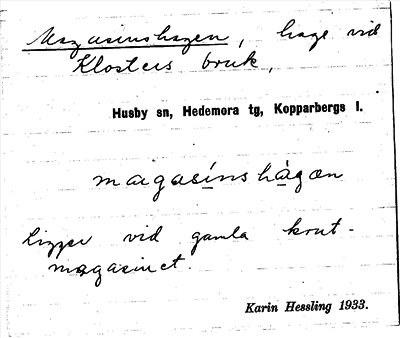 Magasinshagen, hage vid
Klosters bruk,
Husby sn, Hedemora tg, Kopparbergs l.
magasínshàgœn
Ligger vid gamla krut-
magasinet.
Karin Hessling 1933.